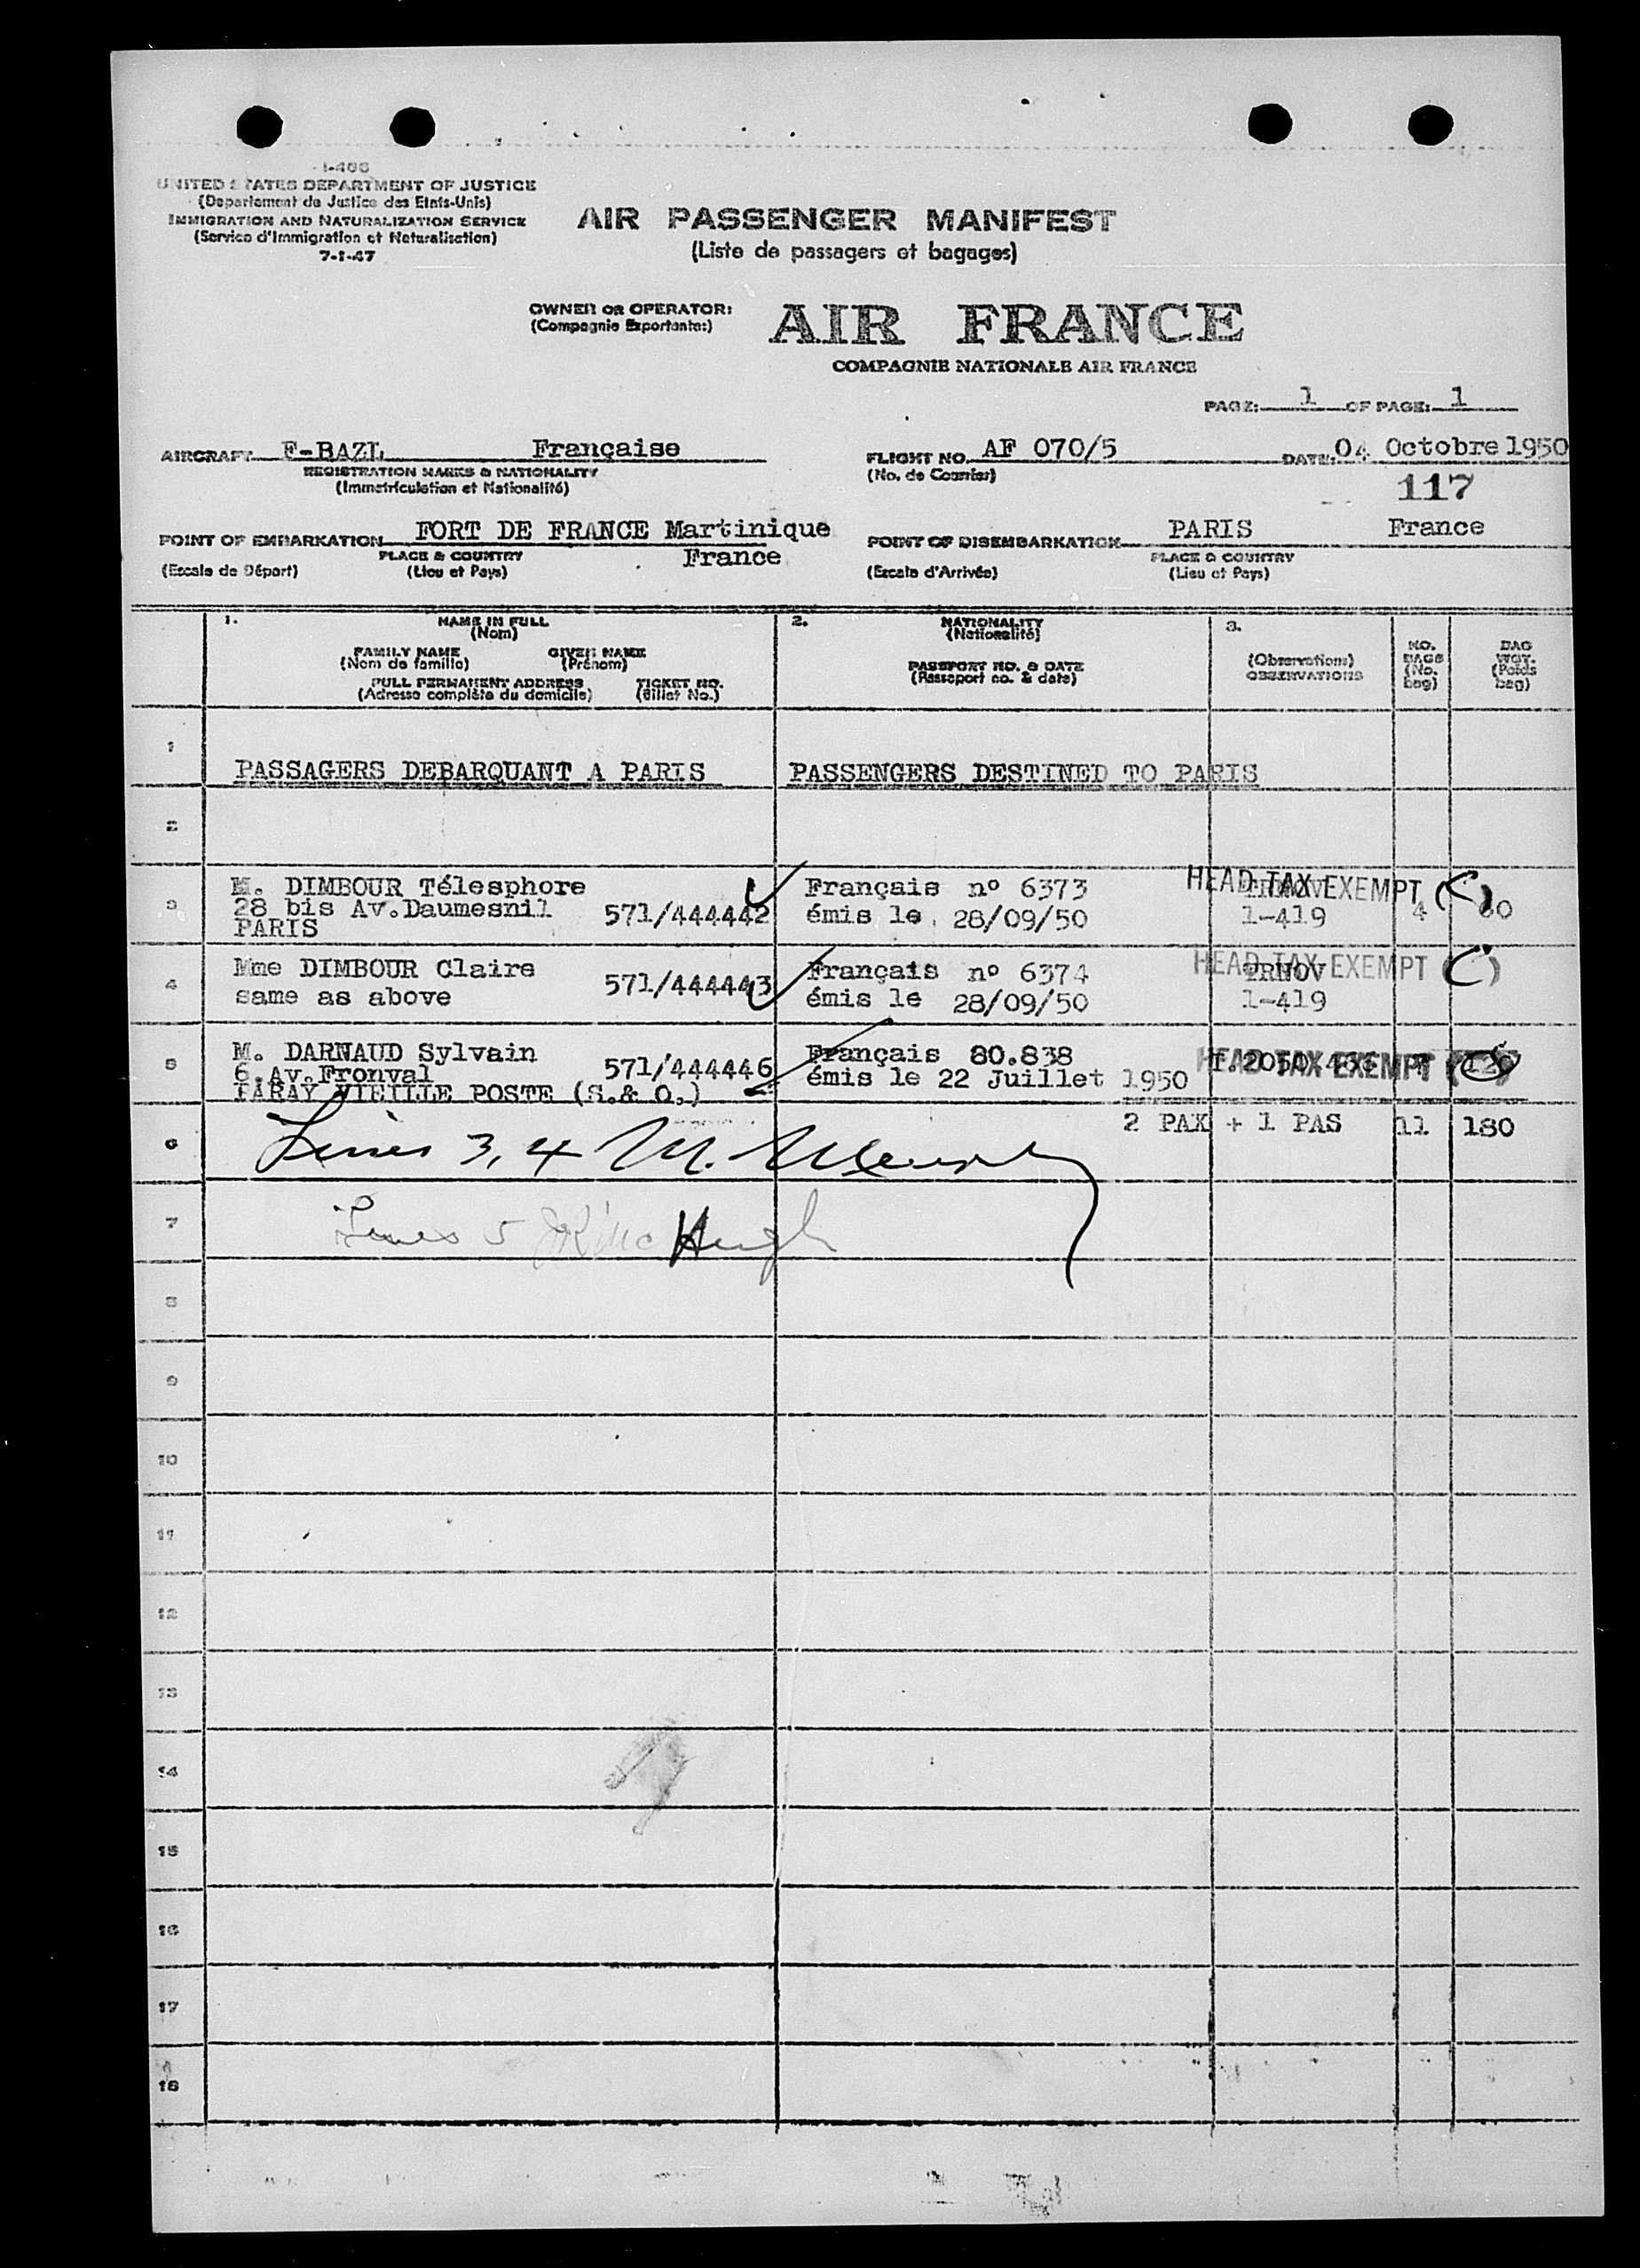 I-466
UNITED STATES DEPARTMENT OF JUSTICE
(Departement de Justice des Etats-Unis)
IMMIGRATION AND NATURALIZATION SERVICE
(Service d'Immigration et Naturalisation)
7-1-47
AIR PASSENGER MANIFEST
(Liste de passagers et bagages)
OWNER OR OPERATOR:
(Compagnie Exportante:)
AIR FRANCE
COMPAGNIE NATIONALE AIR FRANCE
PAGE: 1 OF PAGE: 1
AIRCRAFT F-BAZL Française
REGISTRATION MARKS & NATIONALITY
(Immatriculation et Nationalité)
FLIGHT NO. AF 070/5
(No. de Courrier)
DATE: 04 Octobre 1950
117
POINT OF EMBARKATION FORT DE FRANCE Martinique
PLACE & COUNTRY France
(Escale de Départ) (Lieu et Pays)
POINT OF DISEMBARKATION PARIS France
PLACE & COUNTRY
(Escale d'Arrivée) (Lieu et Pays)
1. NAME IN FULL
(Nom)
FAMILY NAME GIVEN NAME
(Nom de famille) (Prénom)
FULL PERMANENT ADDRESS TICKET NO.
(Adresse complète du domicile) (Billet No.)
2. NATIONALITY
(Nationalité)
PASSPORT NO. & DATE
(Passeport no. & date)
3.
(Observations)
OBSERVATIONS
NO.
BAGS
(No.
bag)
BAG
WGT.
(Poids
bag)
1
PASSAGERS DEBARQUANT A PARIS PASSENGERS DESTINED TO PARIS
2
3
M. DIMBOUR Télesphore Français nº 6373 HEAD TAX EXEMPT
28 bis Av.Daumesnil 571/444442 émis le 28/09/50 1-419 4 60
PARIS
4
Mme DIMBOUR Claire Français nº 6374 HEAD TAX EXEMPT
same as above 571/444443 émis le 28/09/50 1-419
5
M. DARNAUD Sylvain 571/444446 Français 80.838 HEAD TAX EXEMPT
6.Av.Fronval émis le 22 Juillet 1950
PARAY VIEILLE POSTE (S.& O.)
2 PAX + 1 PAS 11 180
6
Lines 3, 4 M.
7
Lines 5
8
9
10
11
12
13
14
15
16
17
18